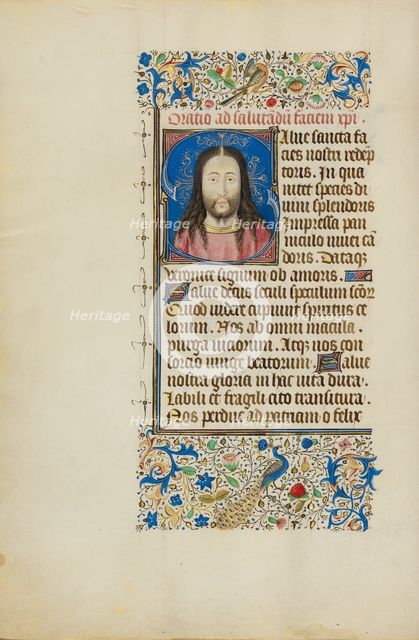 Oratio ad salutādū faciem xpi .
Salue sancta fa
cies nostri redep
toris. In qua
nitet species di
uini splendoris
Impressa pan
niculo niuei cā
doris. Dataqz
veronice signum ob amoris.
Salue decus seculi speculum scōr
Quod videre cupiunt spiritus ce
lorum. Nos ab omni macula
purga viciorum. Atqz nos con
sorcio iunge beatorum. Salue
nostra gloria in hac vita dura.
Labili et fragili cito transitura.
Nos perduc ad patriam o felix
Heritage
Heritage
Heritage
Heritage
Heritage